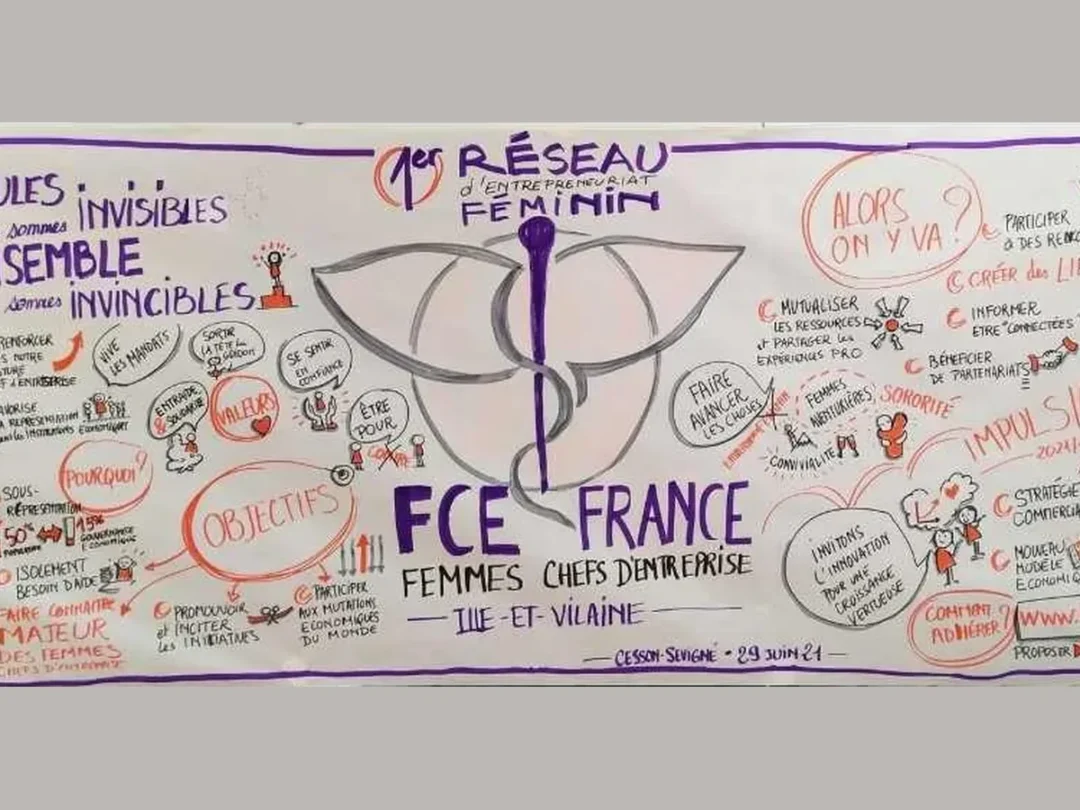 1er RÉSEAU
d'ENTREPRENEURIAT
FÉMININ
ULES
sommes INVISIBLES
SEMBLE
sommes INVINCIBLES
RENFORCER
NOTRE
D'ENTREPRISE
VIVE
LES MANDATS
SORTIR
LA TÊTE du
GUIDON
SE SENTIR
EN
CONFIANCE
ENTRAIDE
& SOLIDARITÉ
VALEURS
ÊTRE
POUR
CONTRE
REPRÉSENTATION
POURQUOI?
SOUS-
REPRÉSENTATION
50%
15%
GOUVERNANCE
ECONOMIQUE
ISOLEMENT
BESOIN D'AIDE
FAIRE CONNAÎTRE
MAJEUR
DES FEMMES
CHEFS D'ENTREPRISE
OBJECTIFS
PROMOUVOIR
et INCITER
les INITIATIVES
PARTICIPER
AUX MUTATIONS
ECONOMIQUES
DU MONDE
FCE FRANCE
FEMMES CHEFS D'ENTREPRISE
ILLE-ET-VILAINE
CESSON-SEVIGNÉ • 29 JUIN 21
ALORS
ON Y VA?
PARTICIPER
à DES
CRÉER des
INFORMER
ETRE "CONNECTÉES"
BÉNEFICIER
DE PARTENARIATS
MUTUALISER
LES RESSOURCES
et PARTAGER les
EXPÉRIENCES PRO
FAIRE
AVANCER
LES CHOSES
FEMMES
AVENTURIÈRES
SORORITÉ
CONVIVIALITÉ
IMPULSI
2021/
INVITONS
L'INNOVATION
POUR UNE
CROISSANCE
VERTUEUSE
STRATÉGIE
COMMERCIA
NOUVEAU
MODÈLE
ECONOMIQU
COMMENT
ADHÉRER?
WWW.
PROPOSER